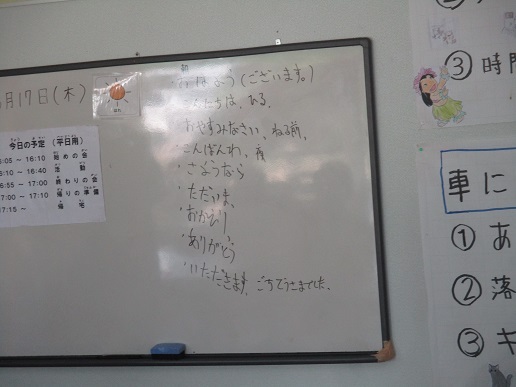 月17日(木)
今日の予定 (平日用)
:05 ～ 16:10 始めの会
:10 ～ 16:40 活動
16:55 ～ 17:00 終わりの会
17:00 ～ 17:10 帰りの準備
17:15 ～ 帰宅
朝
おはよう(ございます。)
こんにちは、ひる、
おやすみなさい、ねる前、
こんばんわ、夜
・さようなら
・ただいま、
・おかえり
・ありがとう
・いただきます、ごちそうさまでした、
③ 時間
車に
① あ
② 落
③ キ